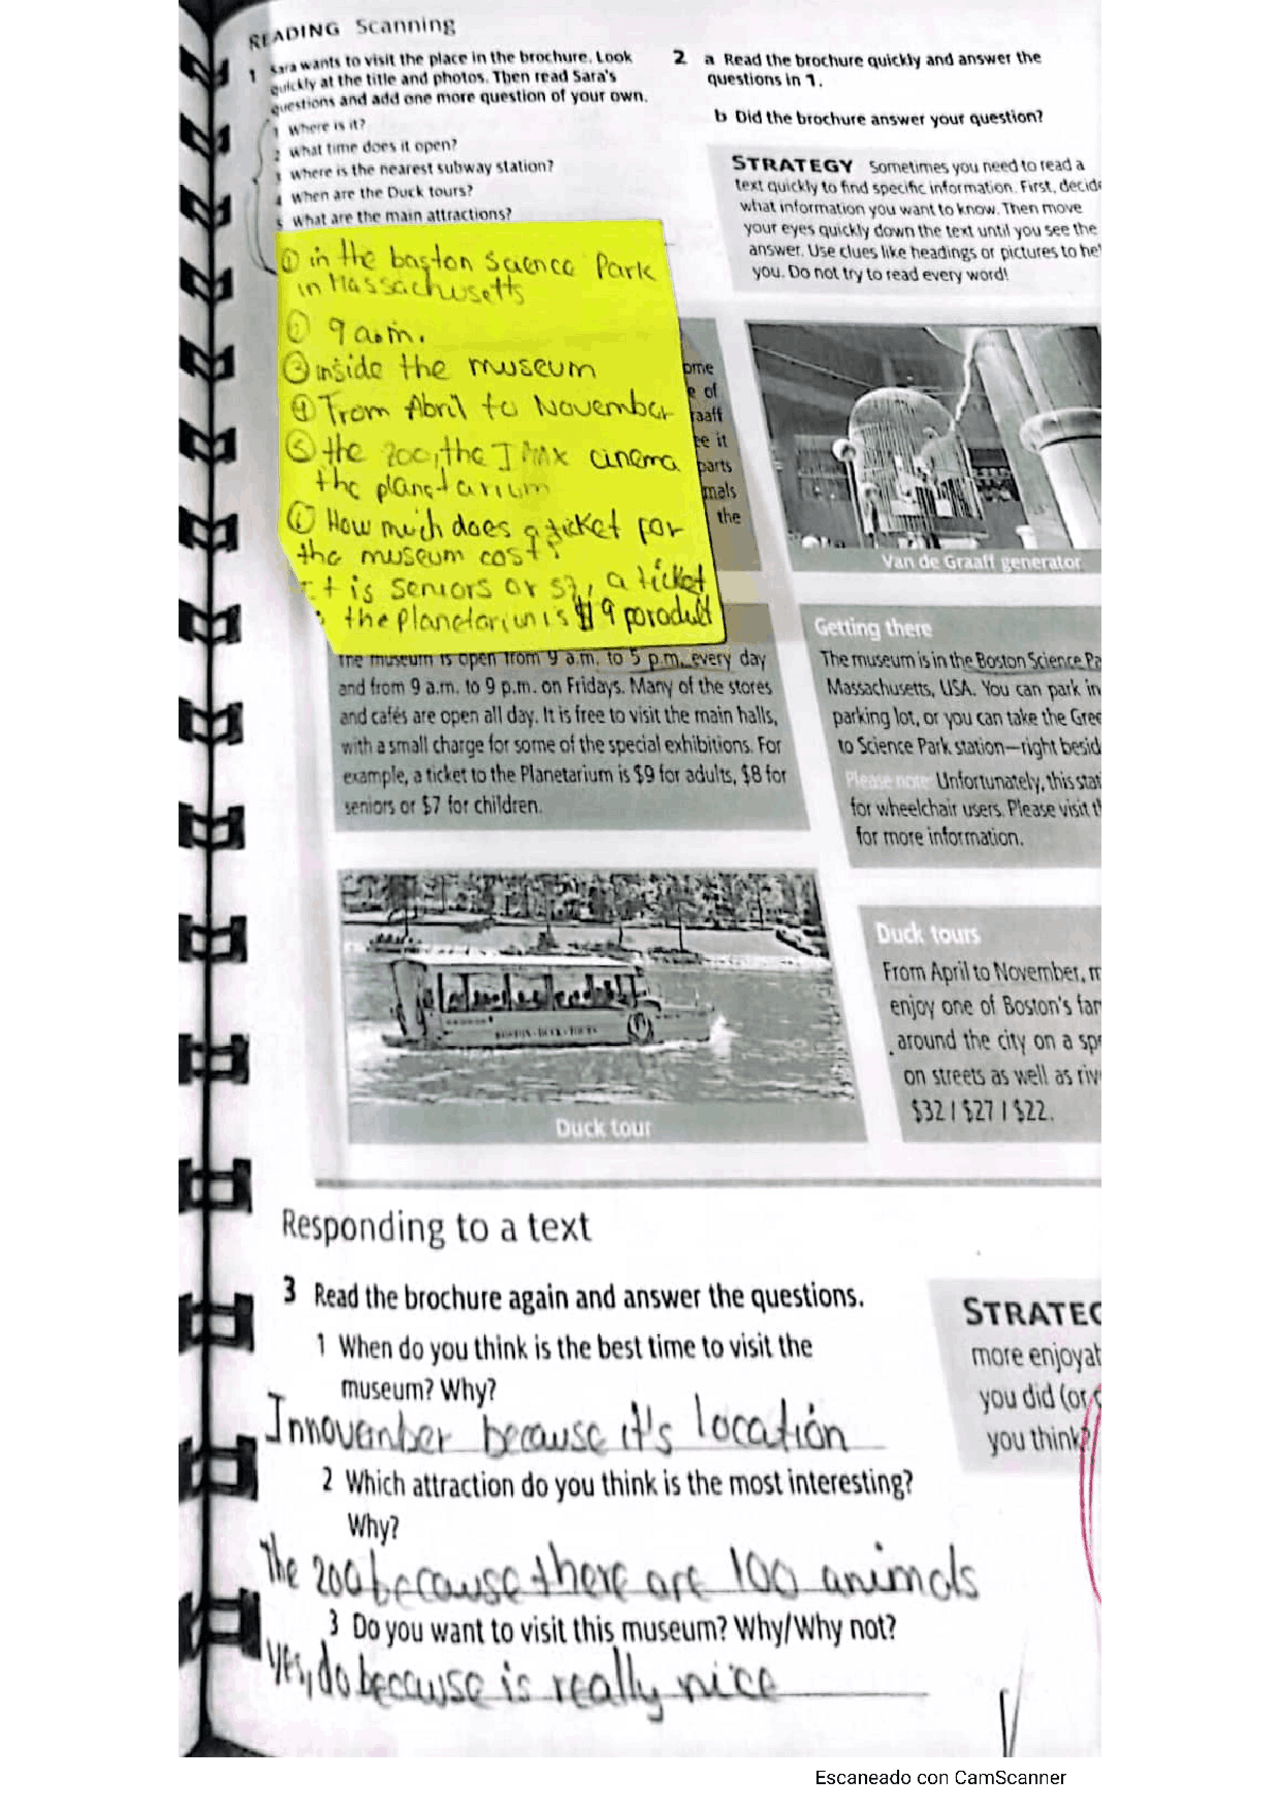 READING Scanning
1 Sara wants to visit the place in the brochure. Look
quickly at the title and photos. Then read Sara's
questions and add one more question of your own.
1 Where is it?
2 What time does it open?
3 Where is the nearest subway station?
4 When are the Duck tours?
5 What are the main attractions?
① in the baston Science Park
in Massachusetts
② 9 a.m.
③ inside the museum
④ From Abril to November
⑤ the zoo, the IMAX cinema
the planetarium
⑥ How much does a ticket for
the museum cost?
It is seniors or $7, a ticket
the Planetariun is $9 por adult
2 a Read the brochure quickly and answer the
questions in 1.
b Did the brochure answer your question?
STRATEGY Sometimes you need to read a
text quickly to find specific information. First, decide
what information you want to know. Then move
your eyes quickly down the text until you see the
answer. Use clues like headings or pictures to hel
you. Do not try to read every word!
ome
e of
raaff
ee it
parts
mals
the
Van de Graaff generator
The museum is open from 9 a.m. to 5 p.m. every day
and from 9 a.m. to 9 p.m. on Fridays. Many of the stores
and cafés are open all day. It is free to visit the main halls,
with a small charge for some of the special exhibitions. For
example, a ticket to the Planetarium is $9 for adults, $8 for
seniors or $7 for children.
Getting there
The museum is in the Boston Science Pa
Massachusetts, USA. You can park in
parking lot, or you can take the Gree
to Science Park station—right besid
Please note Unfortunately, this stat
for wheelchair users. Please visit t
for more information.
BOSTON DUCK TOURS
Duck tour
Duck tours
From April to November, m
enjoy one of Boston's fam
around the city on a spe
on streets as well as riv
$32 | $27 | $22.
Responding to a text
3 Read the brochure again and answer the questions.
1 When do you think is the best time to visit the
museum? Why?
In november because it's location
2 Which attraction do you think is the most interesting?
Why?
The zoo because there are 100 animals
3 Do you want to visit this museum? Why/Why not?
Yes, do because is really nice
STRATEG
more enjoyab
you did (or
you think
Escaneado con CamScanner